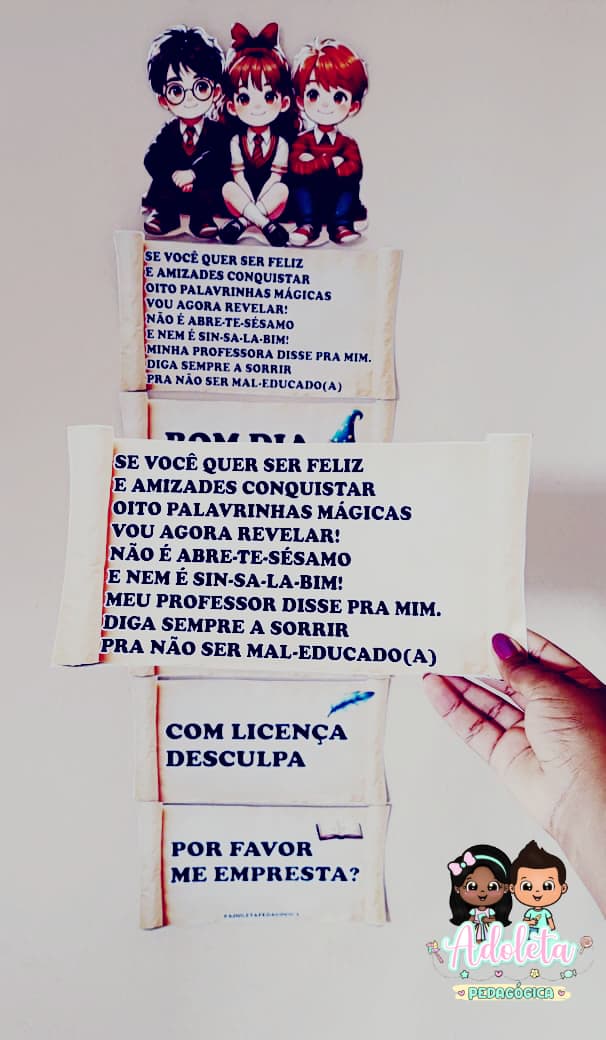 SE VOCÊ QUER SER FELIZ
E AMIZADES CONQUISTAR
OITO PALAVRINHAS MÁGICAS
VOU AGORA REVELAR!
NÃO É ABRE-TE-SÉSAMO
E NEM É SIN-SA-LA-BIM!
MINHA PROFESSORA DISSE PRA MIM.
DIGA SEMPRE A SORRIR
PRA NÃO SER MAL-EDUCADO(A)
BOM DIA
SE VOCÊ QUER SER FELIZ
E AMIZADES CONQUISTAR
OITO PALAVRINHAS MÁGICAS
VOU AGORA REVELAR!
NÃO É ABRE-TE-SÉSAMO
E NEM É SIN-SA-LA-BIM!
MEU PROFESSOR DISSE PRA MIM.
DIGA SEMPRE A SORRIR
PRA NÃO SER MAL-EDUCADO(A)
COM LICENÇA
DESCULPA
POR FAVOR
ME EMPRESTA?
Adoleta
PEDAGÓGICA